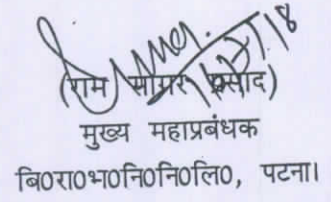 (राम सागर प्रसाद)
मुख्य महाप्रबंधक
बि0रा0भ0नि0नि0लि0, पटना।